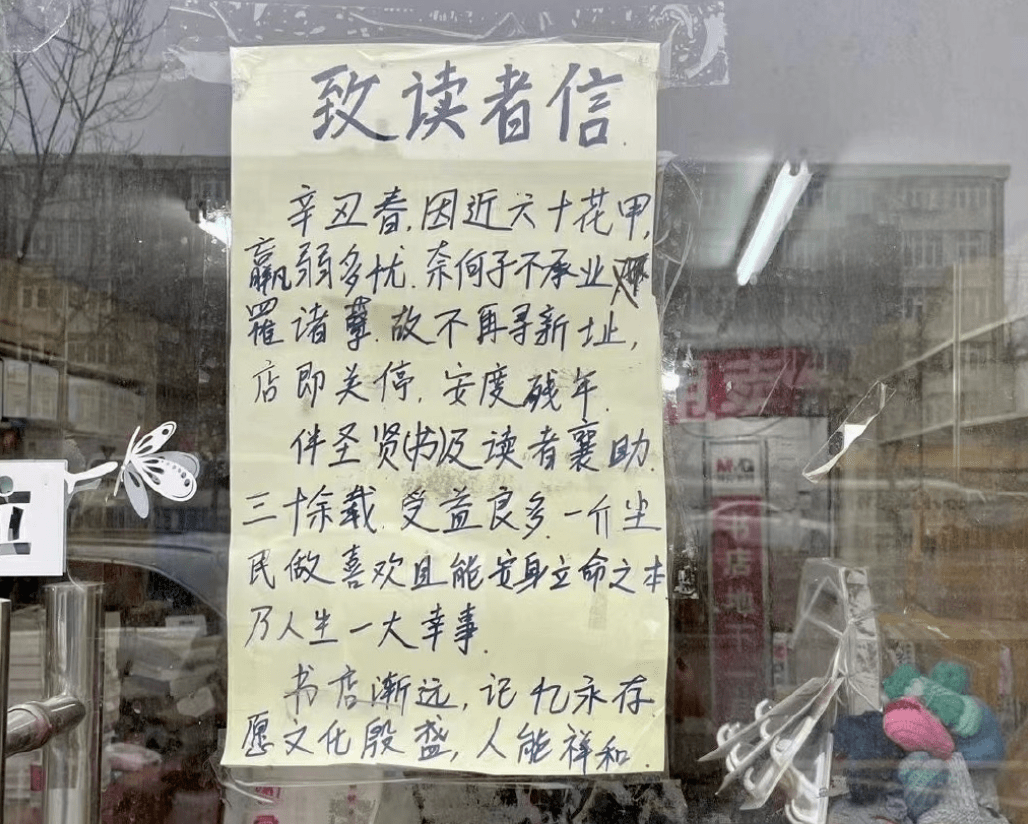 致读者信.
辛丑春,因近六十花甲,
羸弱多忧.奈何子不承业
罹诸孽.故不再寻新址,
店即关停,安度残年.
伴圣贤(书)及读者襄助.
三十余载,受益良多.一介尘
民做喜欢且能安身立命之本
乃人生一大幸事.
书店渐远,记忆永存.
愿文化殷盛,人能祥和.
M&G
书店地下